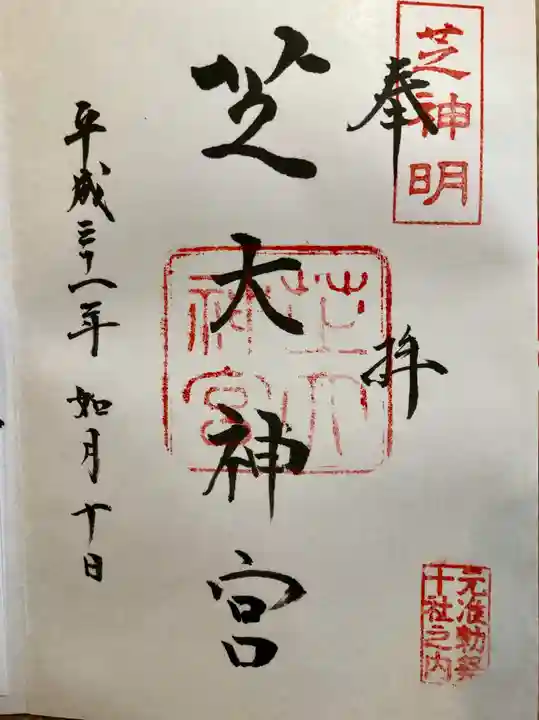 芝神明
奉拝
元准勅祭
十社之内
芝大神宮
芝大
神宮
平成三十一年如月十日